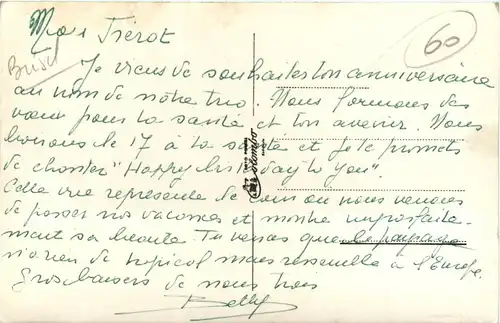 Mon Pierot
60
Je viens de souhaiter ton anniversaire
au nom de notre trio. Nous formons des
vœux pour ta santé et ton avenir. Nous
boirons le 17 à ta santé et je te promets
de chanter "Happy birthday to you".
Cette vue représente de coin où nous venons
de passer nos vacances et montre imparfaite-
ment sa beauté. Tu verras que le paysage
n'a rien de tropical mais ressemble à l'Europe.
Gros baisers de nous trois
Betty